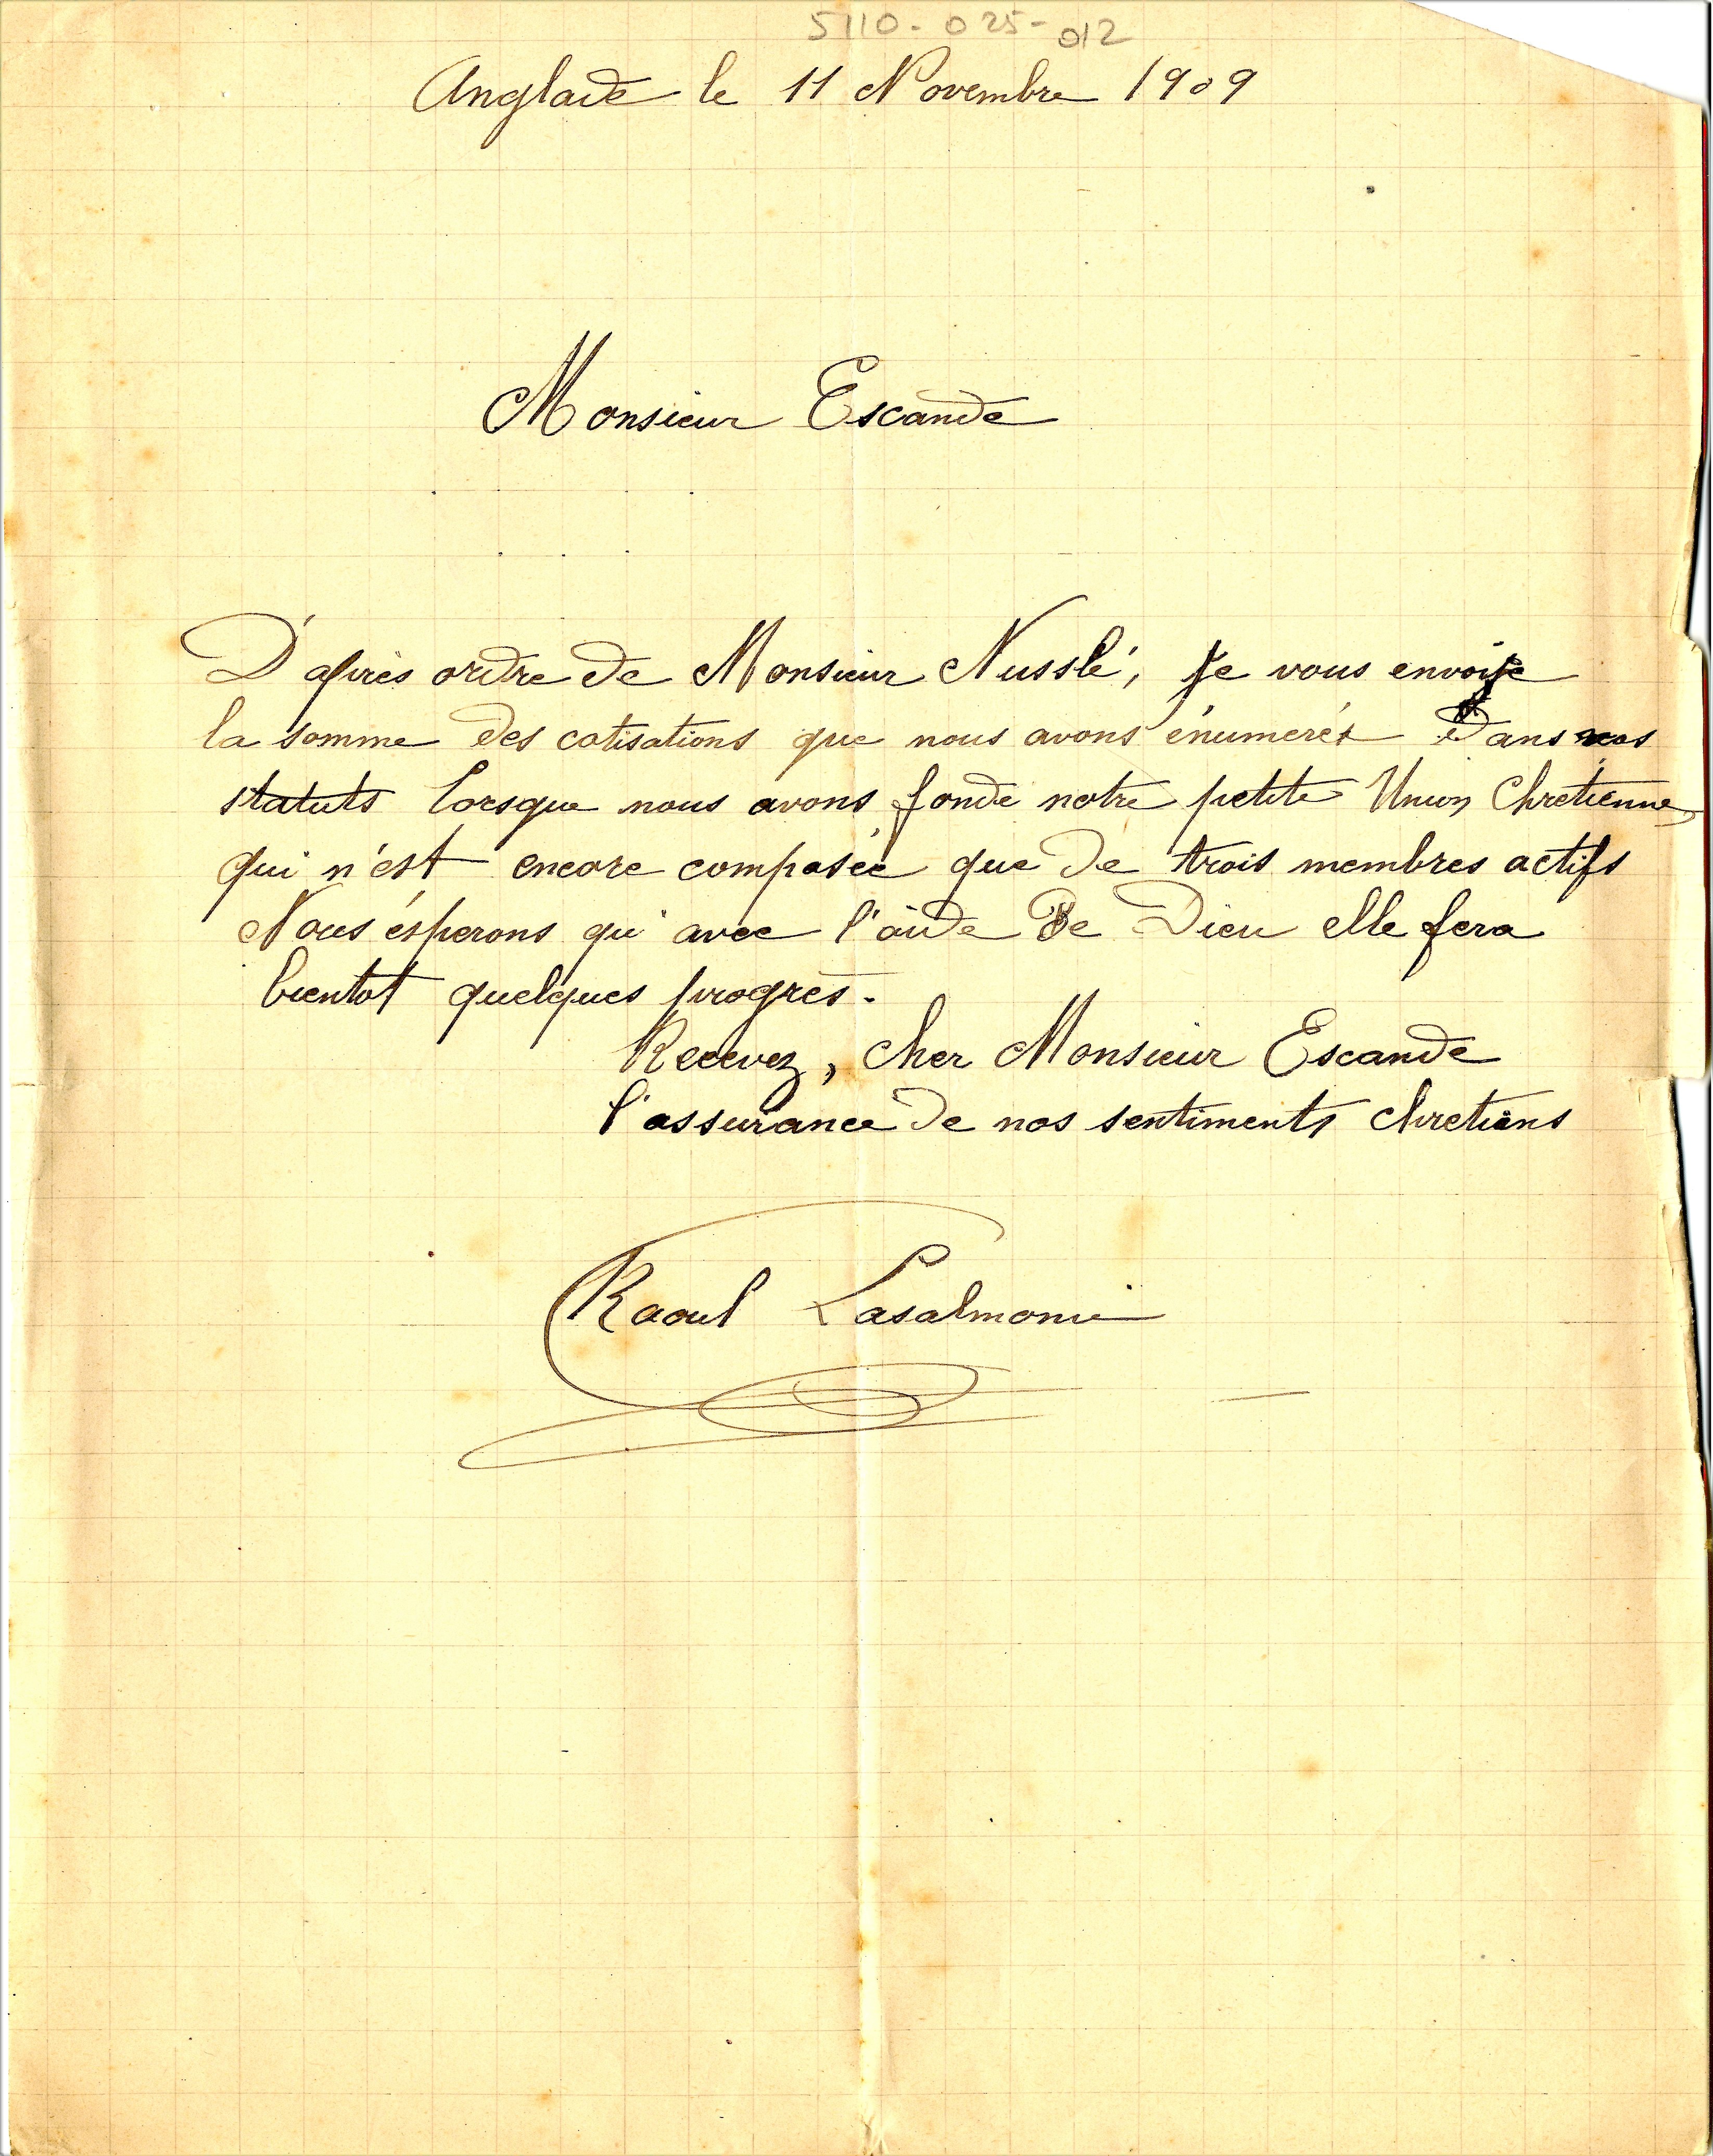 5110-025-012
Anglade le 11 Novembre 1909
Monsieur Escande
D'après ordre de Monsieur Nusslé, je vous envoie
la somme des cotisations que nous avons énumerés dans nos
statuts lorsque nous avons fondé notre petite Union Chretienne
qui n'est encore composée que de trois membres actifs
Nous ésperons qu'avec l'aide de Dieu elle fera
bientot quelques progrès.
Recevez, cher Monsieur Escande
l'assurance de nos sentiments chretiens
Raoul Lasalmonie